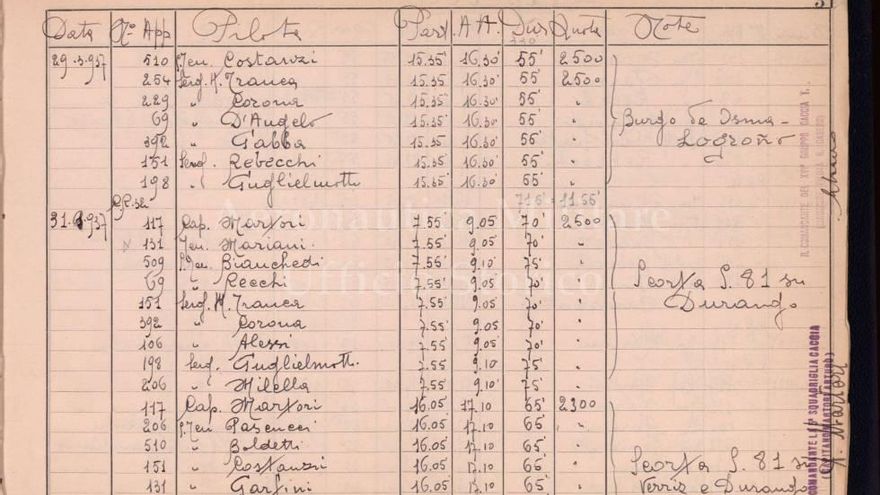 Data No App Pilota Part Att. Durs Quota Note
29.3.937 510 S.Ten. Costanzi 15.35' 16.30' 55' 2500
254 Serg.M. Franca 15.35 16.30' 55' 2500
229 " Corona 15.35' 16.30' 55' "
69 " D'Angelo 15.35' 16.30' 55' "
Burgo de Osma-
392 " Gabba 15.35' 16.30' 55' "
Logroño
151 Serg. Rebecchi 15.35' 16.30' 55' "
198 " Guglielmotti 15.35' 16.30' 55' "
11.55'
31.3.937 117 Cap. Martori 7.55' 9.05' 70' 2500
131 Ten. Mariani 7.55' 9.05' 70' "
509 S.Ten. Bianchedi 7.55' 9.10' 75' "
69 " Recchi 7.55' 9.05' 70' "
Scorta S. 81 su
151 Serg.M. Franca 7.55' 9.05' 70' "
Durango
392 " Corona 7.55' 9.05' 70' "
106 " Alessi 7.55' 9.05' 70' "
198 Serg. Guglielmotti 7.55' 9.10 75' "
206 " Milella 7.55' 9.10' 75' "
117 Cap. Martori 16.05' 17.10 65' 2300
206 S.Ten. Pascucci 16.05 17.10 65' "
510 " Boldetti 16.05 17.10 65' "
151 " Costanzi 16.05 17.10 65' "
Scorta S. 81 su
131 " Garfini 16.05 17.10 65' "
Verriz e Durango
Aeronautica Militare
Ufficio Storico
IL COMANDANTE DEL XVI° GRUPPO CACCIA T.
COMANDANTE LA SQUADRIGLIA CACCIA
(CAPITANO MARTORI ARTURO)
Martori